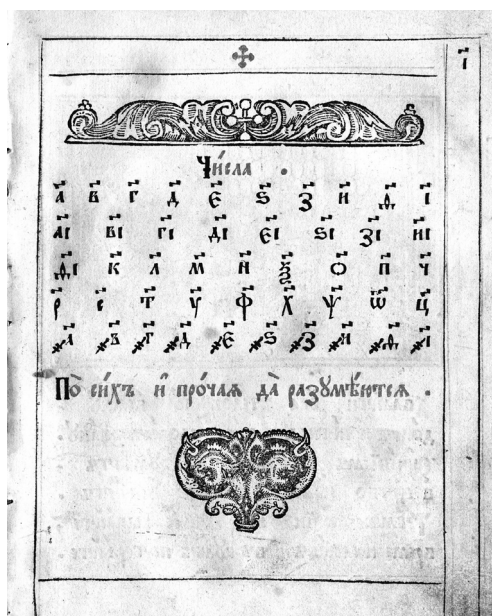 І҃
Чи́сла .
А҃ В҃ Г҃ Д҃ Є҃ Ѕ҃ З҃ И҃ Ѳ҃ І҃
А҃І В҃І Г҃І Д҃І Є҃І Ѕ҃І З҃І И҃І
Ѳ҃І К҃ Л҃ М҃ Н҃ Ѯ҃ Ѻ҃ П҃ Ч҃
Р҃ С҃ Т҃ У҃ Ф҃ Х҃ Ѱ҃ Ѿ҃ Ц҃
҂А҃ ҂В҃ ҂Г҃ ҂Д҃ ҂Є҃ ҂Ѕ҃ ҂З҃ ҂И҃ ҂Ѳ҃ ҂І҃
По̀ си́хъ и҆ про́чаѧ да̀ разꙋмѣ́ютсѧ .